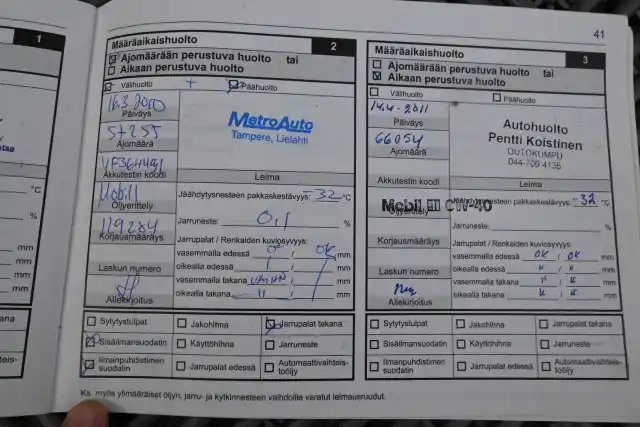 41
1
Määräaikaishuolto
2
Ajomäärään perustuva huolto tai
Aikaan perustuva huolto
Välihuolto + Päähuolto
16.3.2010
Päiväys
MetroAuto
Tampere, Lielahti
Ajomäärä
Akkutestin koodi
Leima
Mobil 1
Öljyerittely
Jäähdytysnesteen pakkaskestävyys: -32 °C
129284
Korjausmääräys
Jarruneste: 0,1 %
Jarrupalat / Renkaiden kuviosyvyys:
vasemmalla edessä OK / OK mm
Laskun numero
oikealla edessä " / mm
vasemmalla takana / mm
oikealla takana " / mm
Allekirjoitus
Sytytystulpat
Jakohihna
Jarrupalat takana
Sisäilmansuodatin
Käyttöhihna
Jarruneste
Ilmanpuhdistimen suodatin
Jarrupalat edessä
Automaattivaihteis-
tööljy
Määräaikaishuolto
3
Ajomäärään perustuva huolto tai
Aikaan perustuva huolto
Välihuolto
Päähuolto
14.4.2011
Päiväys
Autohuolto
Pentti Koistinen
OUTOKUMPU
044-709 4135
66054
Ajomäärä
Akkutestin koodi
Leima
Mobil 1 0W-40
Öljyerittely
Jäähdytysnesteen pakkaskestävyys: -32 °C
Jarruneste: %
Korjausmääräys
Jarrupalat / Renkaiden kuviosyvyys:
vasemmalla edessä OK / OK mm
Laskun numero
oikealla edessä " / " mm
vasemmalla takana " / " mm
oikealla takana " / " mm
Allekirjoitus
Sytytystulpat
Jakohihna
Jarrupalat takana
Sisäilmansuodatin
Käyttöhihna
Jarruneste
Ilmanpuhdistimen
suodatin
Jarrupalat edessä
Automaattivaihteis-
tööljy
Ks. myös ylimääräiset öljyn, jarru- ja kytkinnesteen vaihdoille varatut leimausruudut.
°C
%
mm
mm
mm
mm